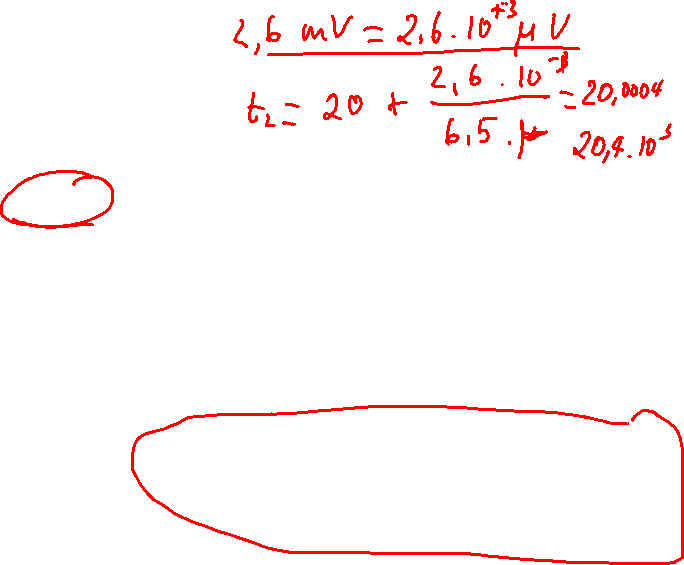 2,6 mV = 2,6 . 10⁺³ μ V
t₂ = 20 + 2,6 . 10⁻³ / 6,5 . = 20,0004
20,4 . 10⁻³